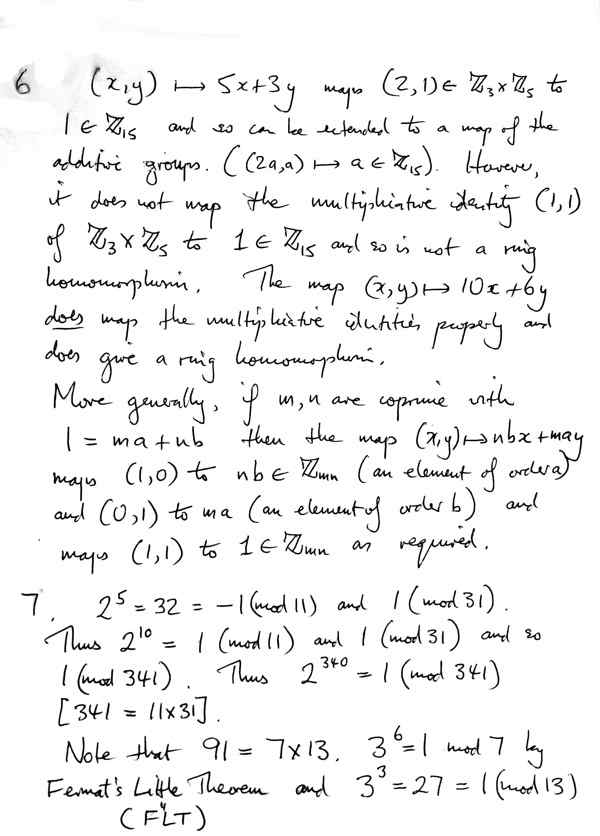 6 (x,y) ↦ 5x+3y maps (2,1) ∈ ℤ₃×ℤ₅ to
1 ∈ ℤ₁₅ and so can be extended to a map of the
additive groups. ((2a,a) ↦ a ∈ ℤ₁₅). However,
it does not map the multiplicative identity (1,1)
of ℤ₃×ℤ₅ to 1 ∈ ℤ₁₅ and so is not a ring
homomorphism. The map (x,y) ↦ 10x+6y
does map the multiplicative identities properly and
does give a ring homomorphism.
More generally, if m,n are coprime with
1 = ma+nb then the map (x,y) ↦ nbx+may
maps (1,0) to nb ∈ ℤmn (an element of order a)
and (0,1) to ma (an element of order b) and
maps (1,1) to 1 ∈ ℤmn as required.
7. 2⁵ = 32 = -1 (mod 11) and 1 (mod 31).
Thus 2¹⁰ = 1 (mod 11) and 1 (mod 31) and so
1 (mod 341). Thus 2³⁴⁰ = 1 (mod 341)
[341 = 11×31].
Note that 91 = 7×13. 3⁶ = 1 mod 7 by
Fermat's Little Theorem and 3³ = 27 = 1 (mod 13)
(FLT)